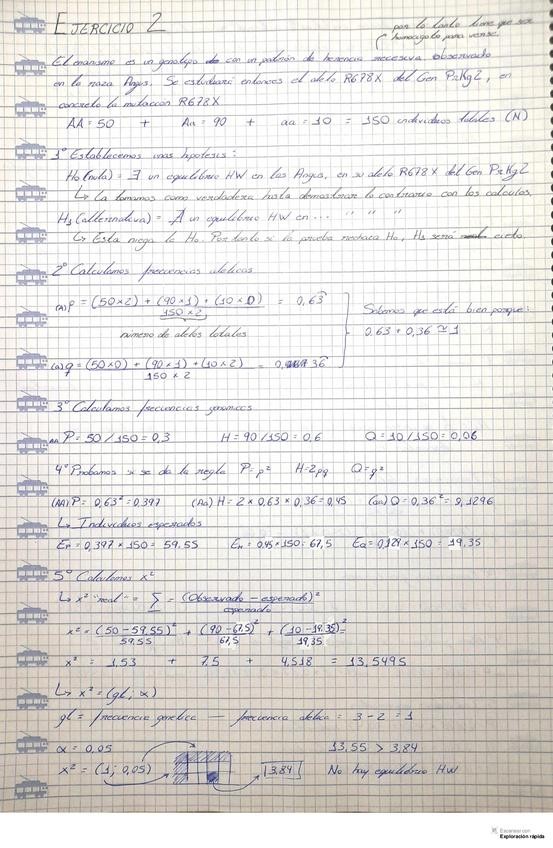 EJERCICIO 2
por lo tanto tiene que ser
homocigoto para verse.
El enanismo es un genotipo de con un patrón de herencia recesiva observado
en la raza Angus. Se estudiará entonces el alelo R678X del Gen PrKg2, en
concreto la mutación R678X
AA = 50 + Aa = 90 + aa = 10 = 150 individuos totales (N)
1º Establecemos unas hipotesis:
H0 (nula) = ∃ un equilibrio HW en las Angus, en su alelo R678X del Gen PrKg2
↳ La tomamos como verdadera hasta demostrar lo contrario con los calculos.
H1 (alternativa) = ∄ un equilibrio HW en ... " " "
↳ Esta niega la H0. Por tanto si la prueba rechaza H0, H1 será cierto.
2º Calculamos frecuencias alélicas
(A) p = (50x2) + (90x1) + (10x0) = 0,63
150 x 2
número de alelos totales
Sabemos que está bien porque:
0,63 + 0,36 ≃ 1
(a) q = (50x0) + (90x1) + (10x2) = 0,36
150 x 2
3º Calculamos frecuencias genómicas
AA P = 50/150 = 0,3 H = 90/150 = 0,6 Q = 10/150 = 0,06
4º Probamos si se da la regla P = p² H = 2pq Q = q²
(AA) P = 0,63² = 0,397 (Aa) H = 2 x 0,63 x 0,36 = 0,45 (aa) Q = 0,36² = 0,1296
↳ Individuos esperados
Ep = 0,397 x 150 = 59,55 EH = 0,45 x 150 = 67,5 EQ = 0,129 x 150 = 19,35
5º Calculamos x²
↳ x² "real" = Σ = (Observado - esperado)²
esperado
x² = (50 - 59,55)² + (90 - 67,5)² + (10 - 19,35)² =
59,55 67,5 19,35
x² = 1,53 + 7,5 + 4,518 = 13,5495
↳ x² = (gl; α)
gl = frecuencia genética — frecuencia alélica = 3 - 2 = 1
α = 0,05 13,55 > 3,84
x² = (1; 0,05) 3,84 No hay equilibrio HW
Escaneado con
Exploración rápida